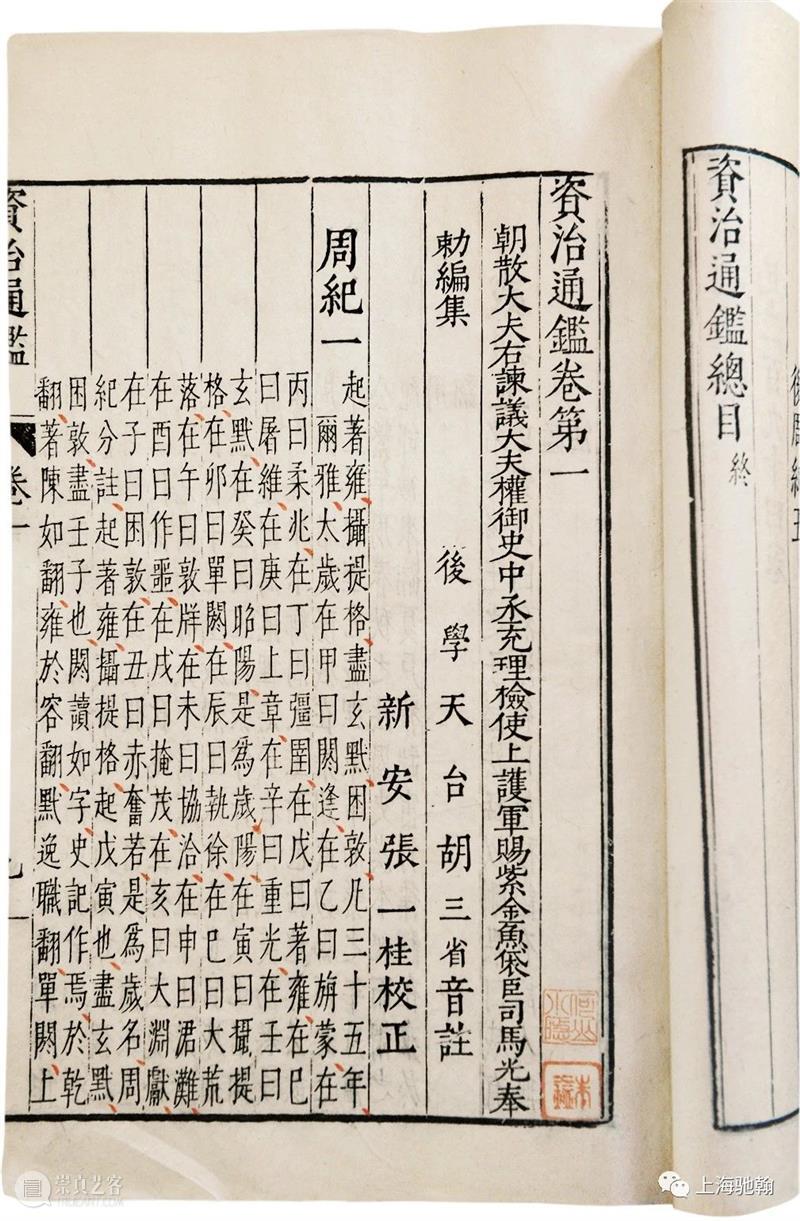 後周紀五
資治通鑑總目終
資治通鑑卷第一
朝散大夫右諫議大夫權御史中丞充理檢使上護軍賜紫金魚袋臣司馬光奉
勑編集
後學天台胡三省音註
新安張一桂校正
周紀一
起著雍攝提格盡玄黓困敦凡三十五年
爾雅太歲在甲曰閼逢在乙曰旃蒙在
丙曰柔兆在丁曰彊圉在戊曰著雍在巳
曰屠維在庚曰上章在辛曰重光在壬曰
玄黓在癸曰昭陽是爲歲陽在寅曰攝提
格在卯曰單閼在辰曰執徐在巳曰大荒
落在午曰敦牂在未曰協洽在申曰涒灘
在酉曰作噩在戌曰掩茂在亥曰大淵獻
在子曰困敦在丑曰赤奮若是爲歲名周
紀分註起著雍攝提格起戊寅也盡玄黓
困敦盡壬子也閼讀如字史記作焉於乾
翻著陳如翻雍於容翻黓逸職翻單閼上
資治通鑑
卷一
崇真艺客
TRUEART.COM
上海驰翰